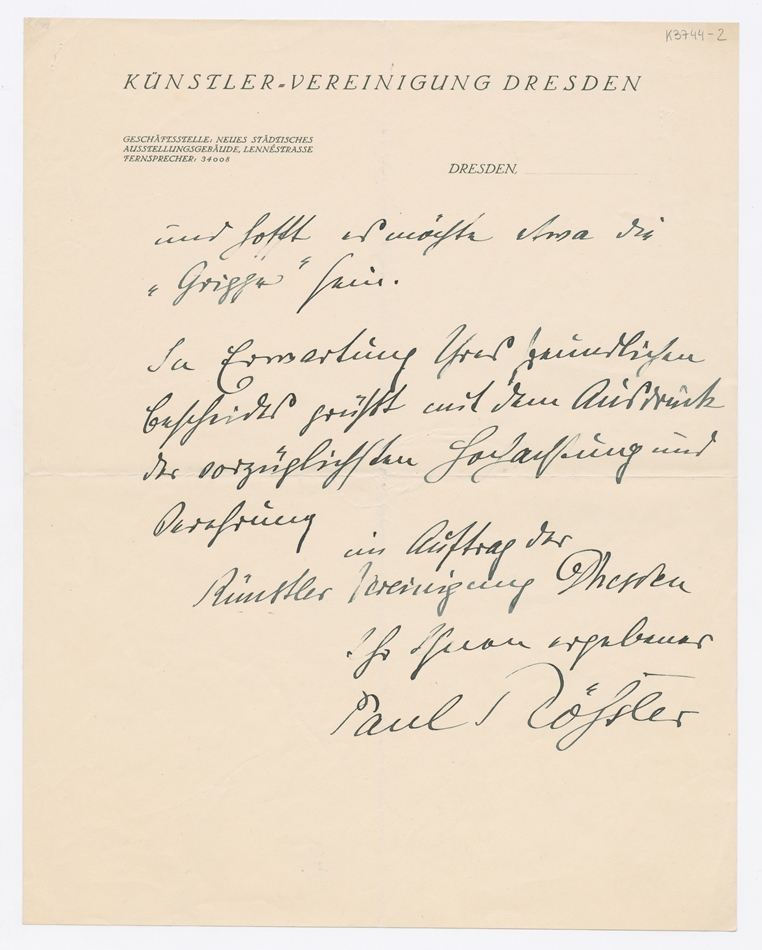 K3744-2
KÜNSTLER-VEREINIGUNG DRESDEN
GESCHÄFTSSTELLE: NEUES STÄDTISCHES
AUSSTELLUNGSGEBÄUDE, LENNÉSTRASSE
FERNSPRECHER: 34008
DRESDEN,
und hofft es möchte etwa die
„Grippe" sein.
In Erwartung Ihres freundlichen
Bescheides grüßt mit dem Ausdruck
der vorzüglichsten Hochachtung und
Verehrung
im Auftrag der
Künstler Vereinigung Dresden
Ihr Ihnen ergebener
Paul Rößler